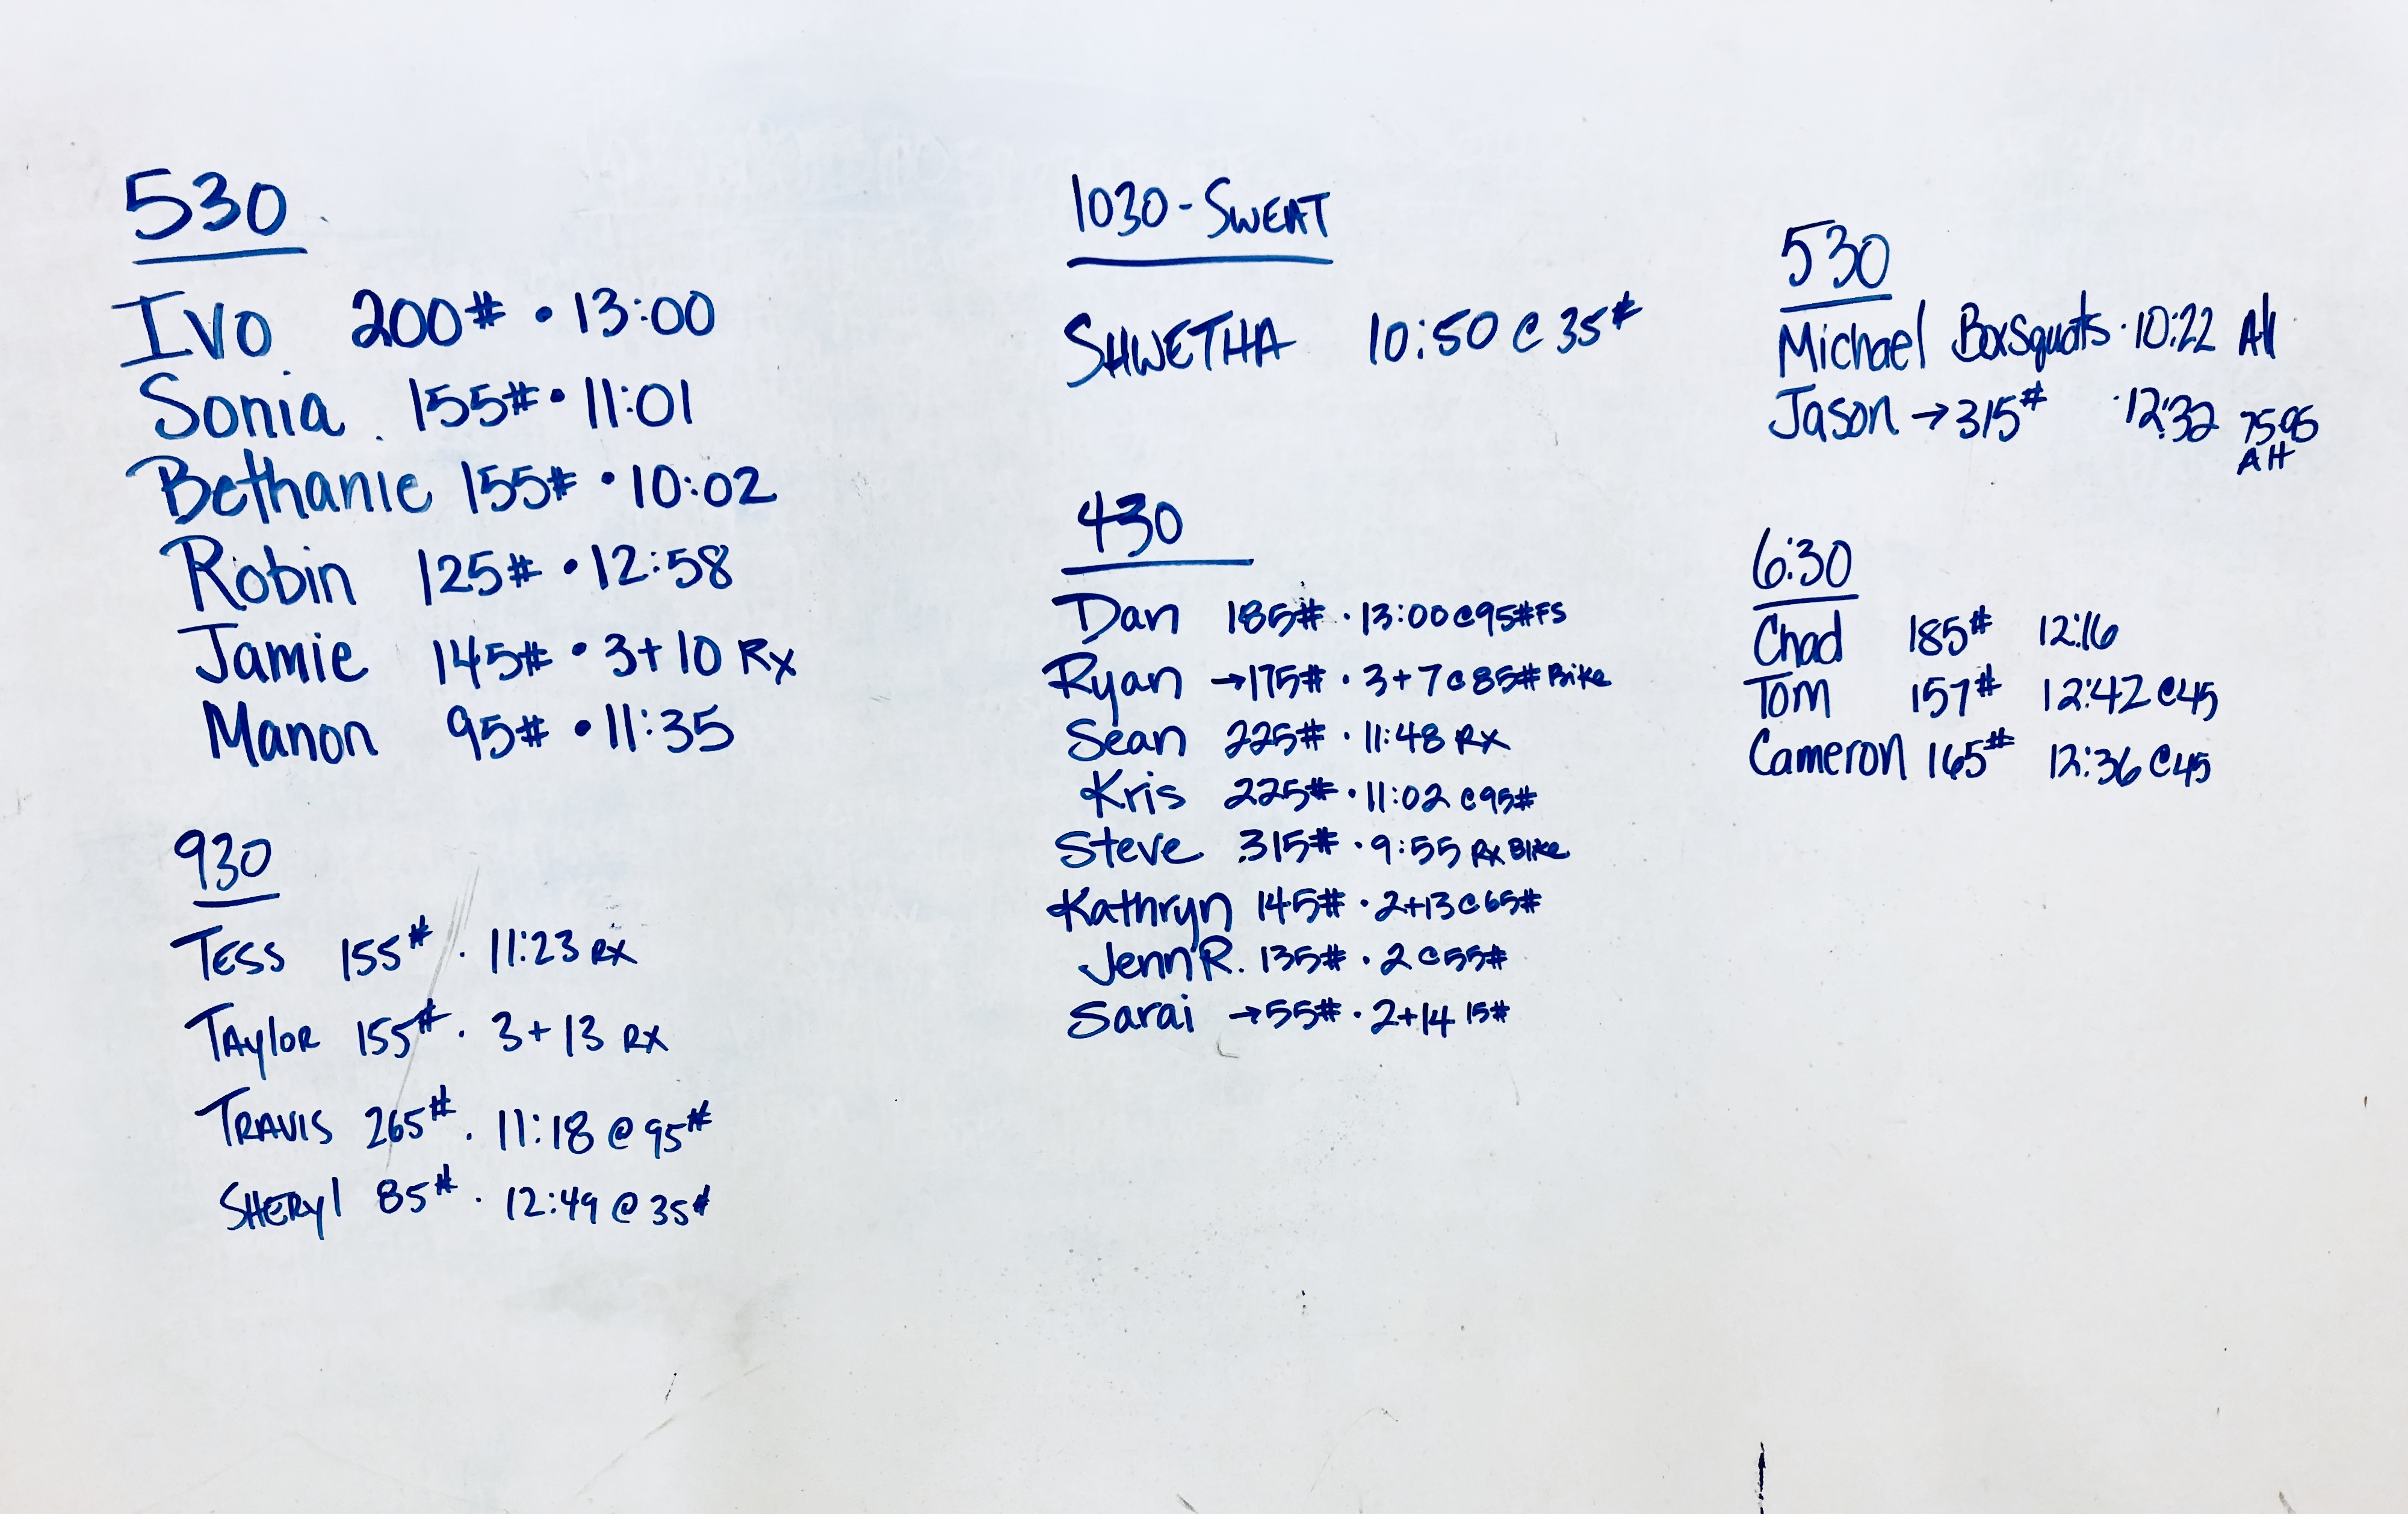 530
Ivo 200# • 13:00
Sonia 155# • 11:01
Bethanie 155# • 10:02
Robin 125# • 12:58
Jamie 145# • 3+10 Rx
Manon 95# • 11:35
930
TESS 155# · 11:23 RX
TAylOR 155# · 3+13 RX
TRAVIS 265# · 11:18 @ 95#
SHERyl 85# · 12:49 @ 35#
1030 - SWEAT
SHWETHA 10:50 @ 35#
430
Dan 185# · 13:00 @ 95# FS
Ryan →175# · 3+7 @ 85# Bike
Sean 225# · 11:48 RX
Kris 225# · 11:02 @ 95#
Steve 315# · 9:55 Rx Bike
Kathryn 145# · 2+13 @ 65#
Jenn R. 135# · 2 @ 55#
Sarai →55# · 2+14 15#
530
Michael BoxSquats · 10:22 Alt
Jason → 315# · 12:32 75-95
Alt
6:30
Chad 185# 12:16
Tom 157# 12:42 @ 45
Cameron 165# 12:36 @ 45